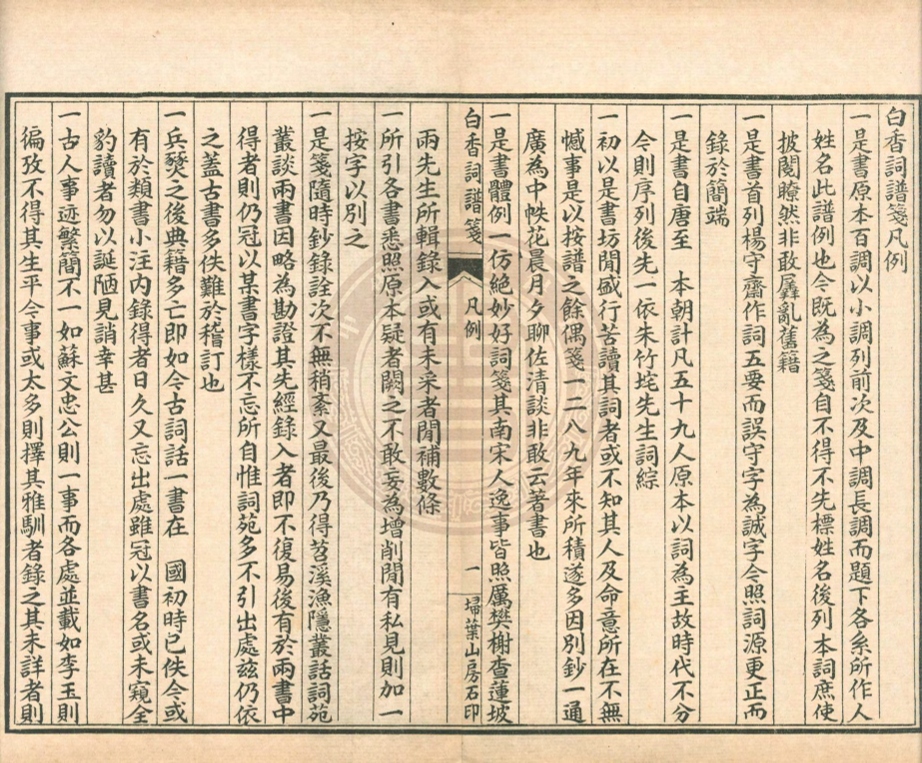 白香詞譜箋凡例
一是書原本百調以小調列前次及中調長調而題下各系所作人
姓名此譜例也今既為之箋自不得不先標姓名後列本詞庶使
披閱瞭然非敢羼亂舊籍
一是書首列楊守齋作詞五要而誤守字為誠字今照詞源更正而
錄於簡端
一是書自唐至　本朝計凡五十九人原本以詞為主故時代不分
今則序列後先一依朱竹垞先生詞綜
一初以是書坊閒盛行苦讀其詞者或不知其人及命意所在不無
憾事是以按譜之餘偶箋一二八九年來所積遂多因別鈔一通
廣為中帙花晨月夕聊佐清談非敢云著書也
一是書體例一仿絕妙好詞箋其南宋人逸事皆照厲樊榭查蓮坡
白香詞譜箋　凡例　一　埽葉山房石印
兩先生所輯錄入或有未采者閒補數條
一所引各書悉照原本疑者闕之不敢妄為增削閒有私見則加一
按字以別之
一是箋隨時鈔錄詮次不無稍紊又最後乃得苕溪漁隱叢話詞苑
叢談兩書因略為勘證其先經錄入者即不復易後有於兩書中
得者則仍冠以某書字樣不忘所自惟詞苑多不引出處玆仍依
之蓋古書多佚難於稽訂也
一兵燹之後典籍多亡即如今古詞話一書在　國初時已佚今或
有於類書小注內錄得者日久又忘出處雖冠以書名或未窺全
豹讀者勿以誕陋見誚幸甚
一古人事迹繁簡不一如蘇文忠公則一事而各處並載如李玉則
徧攷不得其生平今事或太多則擇其雅馴者錄之其未詳者則